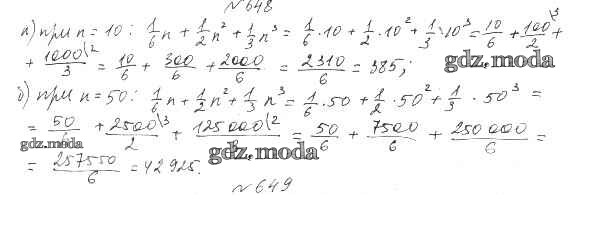 №648
а) при n = 10: 1/6 n + 1/2 n² + 1/3 n³ = 1/6 · 10 + 1/2 · 10² + 1/3 · 10³ = 10/6 + 100\3/2 +
+ 1000\2/3 = 10/6 + 300/6 + 2000/6 = 2310/6 = 385;
gdz.moda
б) при n = 50: 1/6 n + 1/2 n² + 1/3 n³ = 1/6 · 50 + 1/2 · 50² + 1/3 · 50³ =
= 50/6 + 2500\3/2 + 125000\2/3 = 50/6 + 7500/6 + 250000/6 =
gdz.moda gdz.moda
= 257550/6 = 42925.
№649